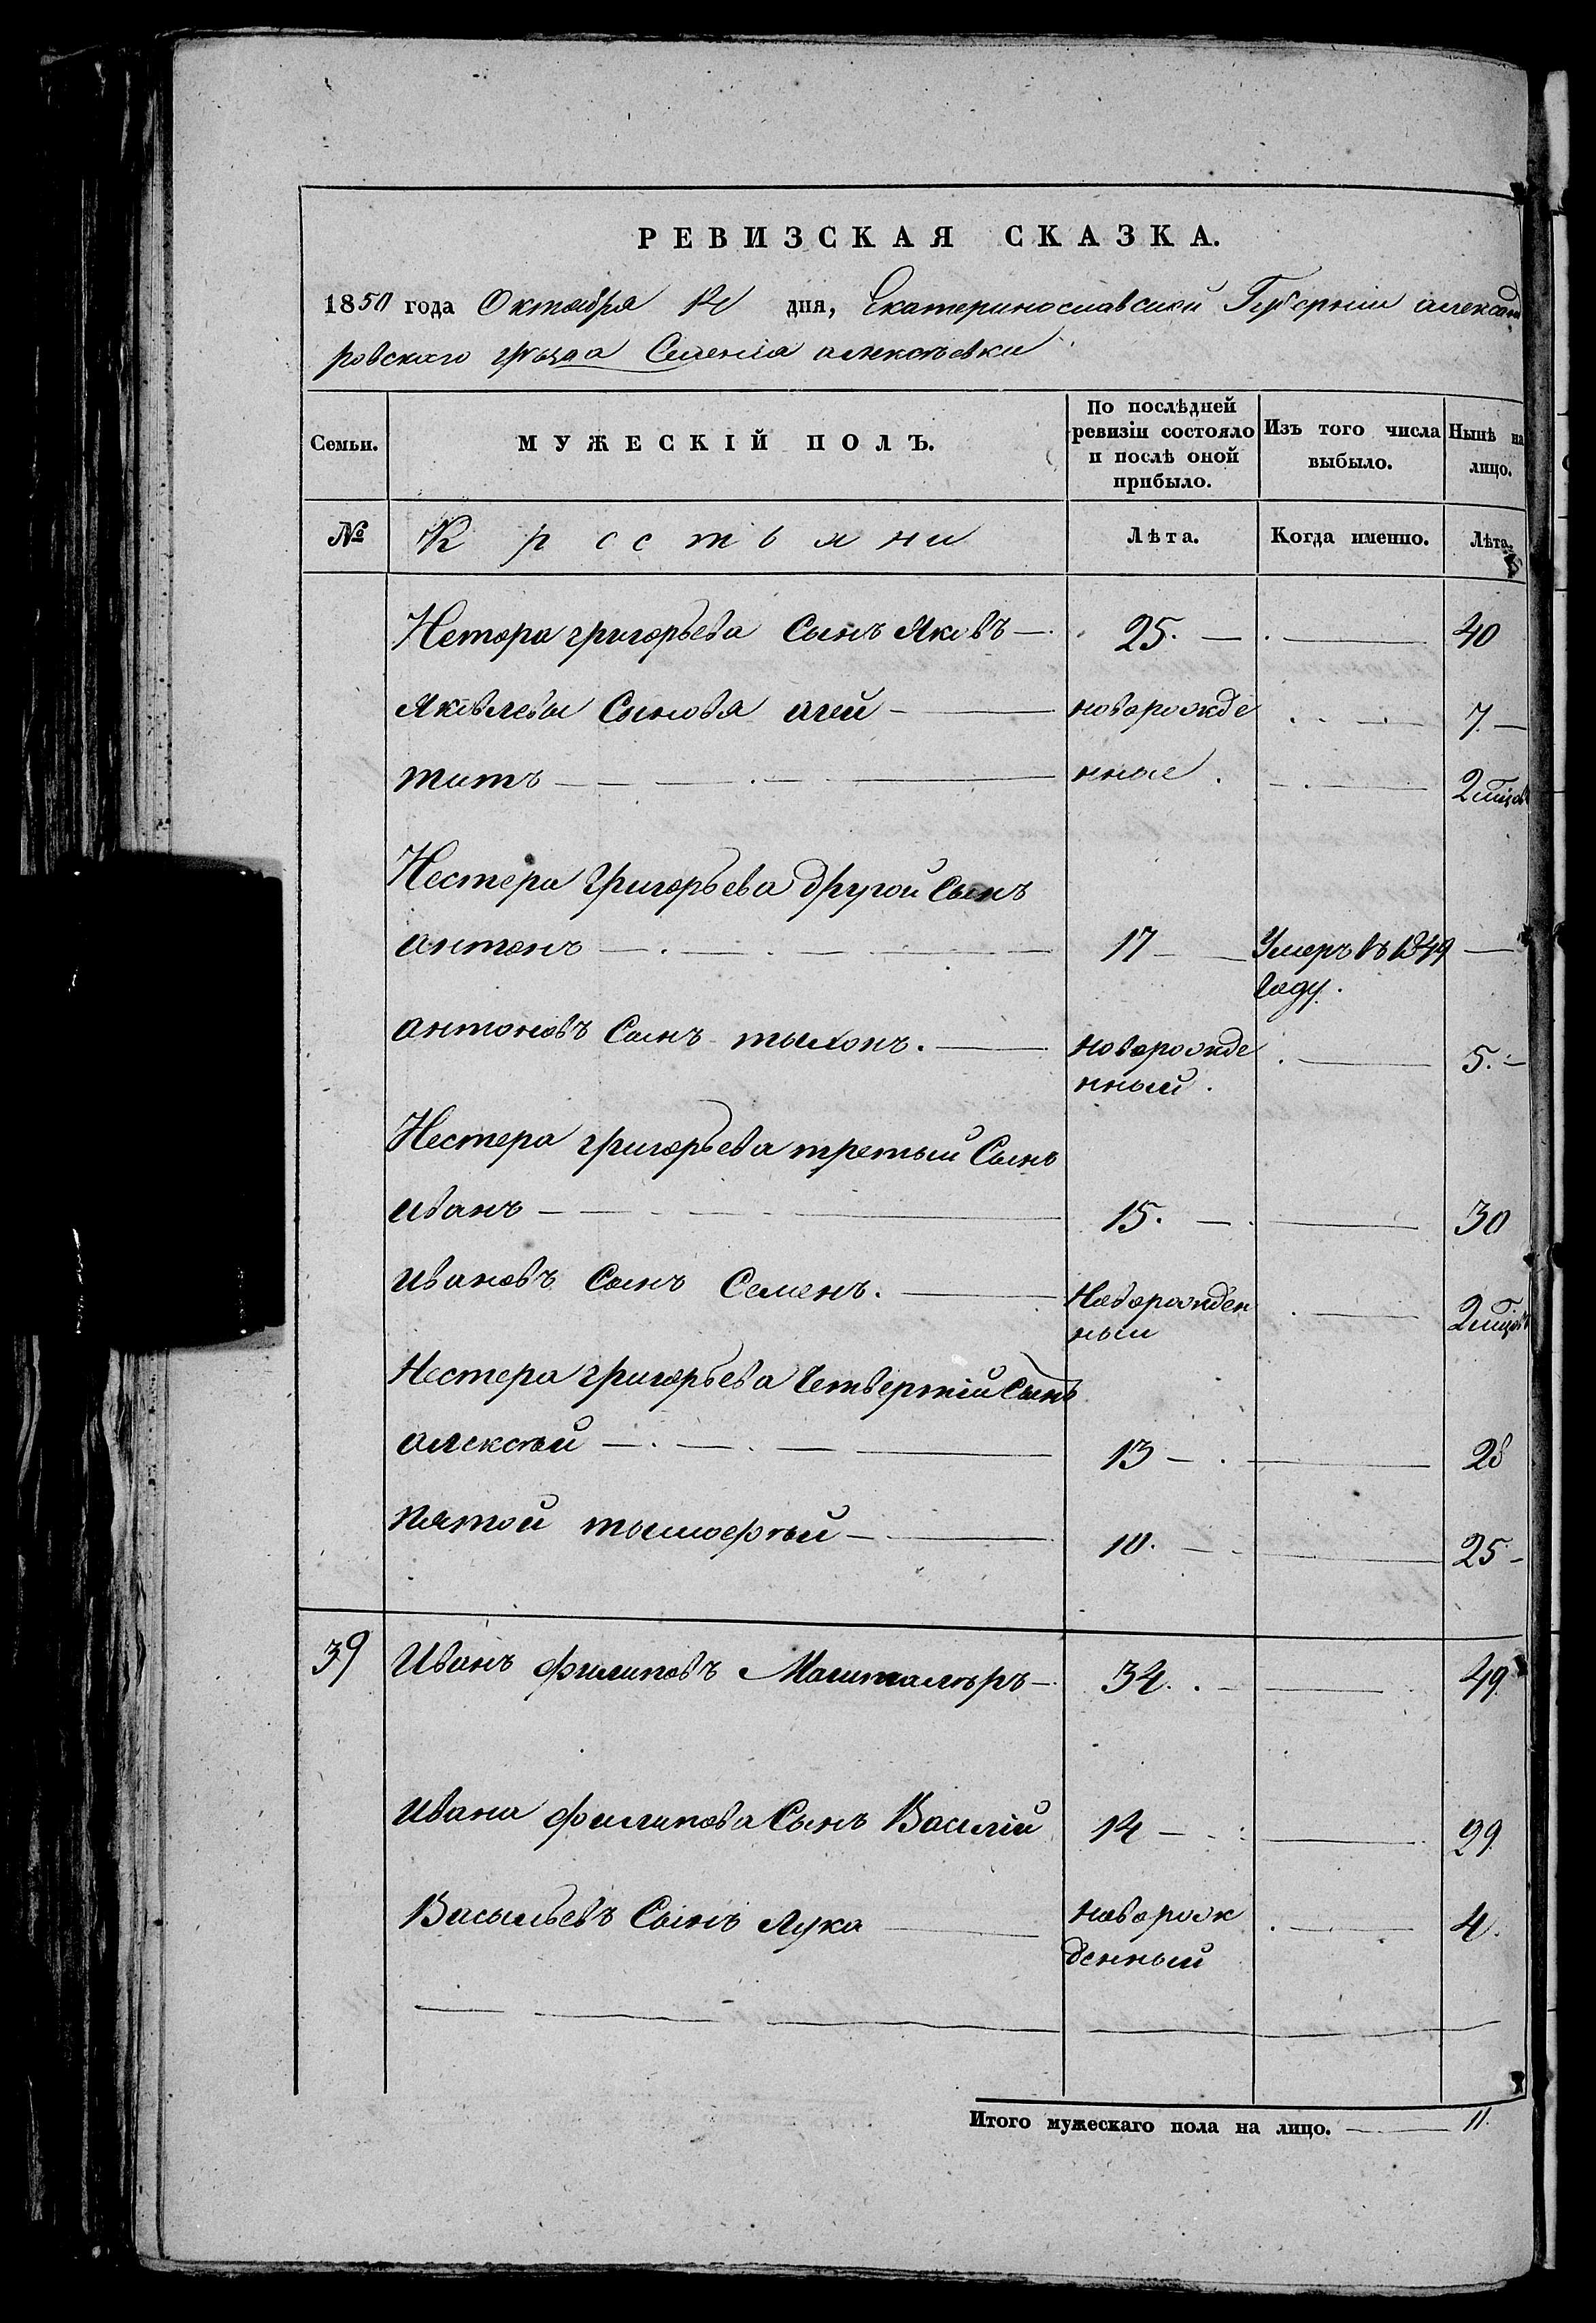 РЕВИЗСКАЯ СКАЗКА.
1850 года Октября дня, Екатеринославской Губерніи александ
ровскаго уѣзда Селенія алексѣевки
Семьи.
МУЖЕСКІЙ ПОЛЪ.
По послѣдней
ревизіи состояло
и послѣ оной
прибыло.
Изъ того числа
выбыло.
Нынѣ на
лицо.
№ Крестьяни Лѣта. Когда именно. Лѣта.
Нетора григорьева Сынъ Яковъ — 25. — — 40
Яковлевы Сыновя — новорожде — 7. —
титъ — нные. — 2 мцов
Нестера григорьева другой Сынъ
антонъ — 17 — Умеръ въ 1849 —
году.
антоновъ Сынъ тыхонъ. — новорожде — 5. —
нный.
Нестера григорьева третый Сынъ
иванъ — 15. — — 30
ивановъ Сынъ Семенъ. — Новорожден — 2 мцов
ный
Нестера григорьева Четвертій Сынъ
алексѣй — 13 — — 28
пятой тымофѣй — 10. — — 25 —
39 Иванъ филиповъ Машталѣръ — 34. — — 49.
ивана филипова Сынъ Василій 14 — — 29.
Васыльевъ Сынъ Лука — новорож — 4.
денный
Итого мужескаго пола на лицо. — 11.